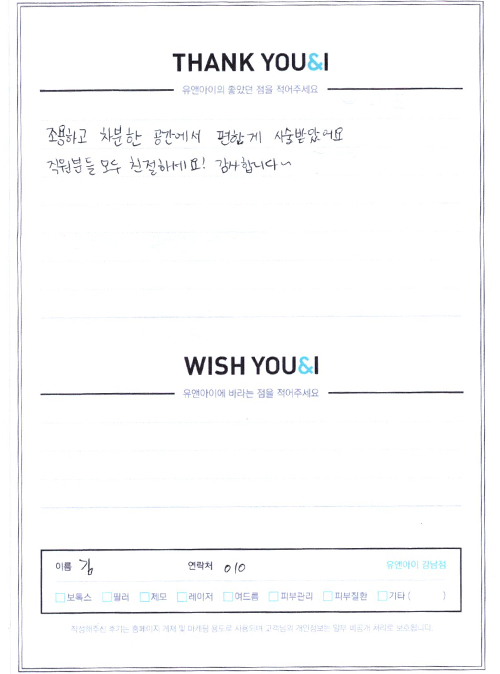 THANK YOU&I
유앤아이의 좋았던 점을 적어주세요
조용하고 차분한 공간에서 편하게 시술받았어요
직원분들 모두 친절하세요! 감사합니다~
WISH YOU&I
유앤아이에 바라는 점을 적어주세요
이름 김 연락처 010 유앤아이 강남점
보톡스 필러 제모 레이저 여드름 피부관리 피부질환 기타 ( )
작성해주신 후기는 홈페이지 게재 및 마케팅 용도로 사용되며 고객님의 개인정보는 일부 비공개 처리로 보호됩니다.